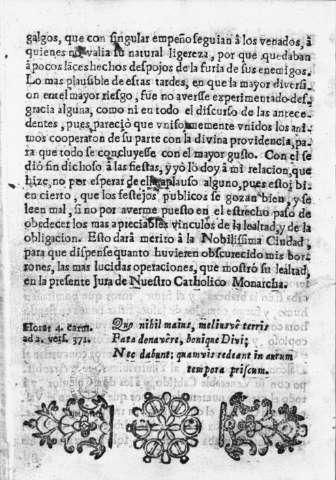 galgos, que con singular empeño seguian â los venados, â
quienes no valia su natural ligereza, por que quedaban
â pocos laces hechos despojos de la furia de sus enemigos.
Lo mas plausible de estas tardes, en que la mayor diversi-
on en el mayor riesgo, fue no averse experimentado des-
gracia alguna, como ni en todo el discurso de las antece-
dentes, pues pareciô que vnisonemente vnidos los ani-
mos cooperaron de su parte con la divina providencia, pa-
ra que todo se concluyesse con el mayor gusto. Con el se
diô fin dichoso â las fiestas, y yô lo doy â mi relacion, que
hize, no por esperar de ella aplauso alguno, pues estoi bi-
en cierto, que los festejos publicos se gozan bien, y se
leen mal, si no por averme puesto en el estrecho paso de
obedecer los mas apreciables vinculos de la lealtad, y de
la obligacion. Esto darâ merito â la Nobilissima Ciudad,
para que dispense quanto huvieren obscurecido mis bor-
rones, las mas lucidas operaciones, que mostrô su lealtad,
en la presente Jura de Nuestro Catholico Monarcha.
Horat 4. carm.
ad 2. vers. 371.
Quo nihil maius, meliusvè terris
Fata donavère, bonique Divi;
Nec dabunt; quamvis redeant in aurum
tempora priscum.